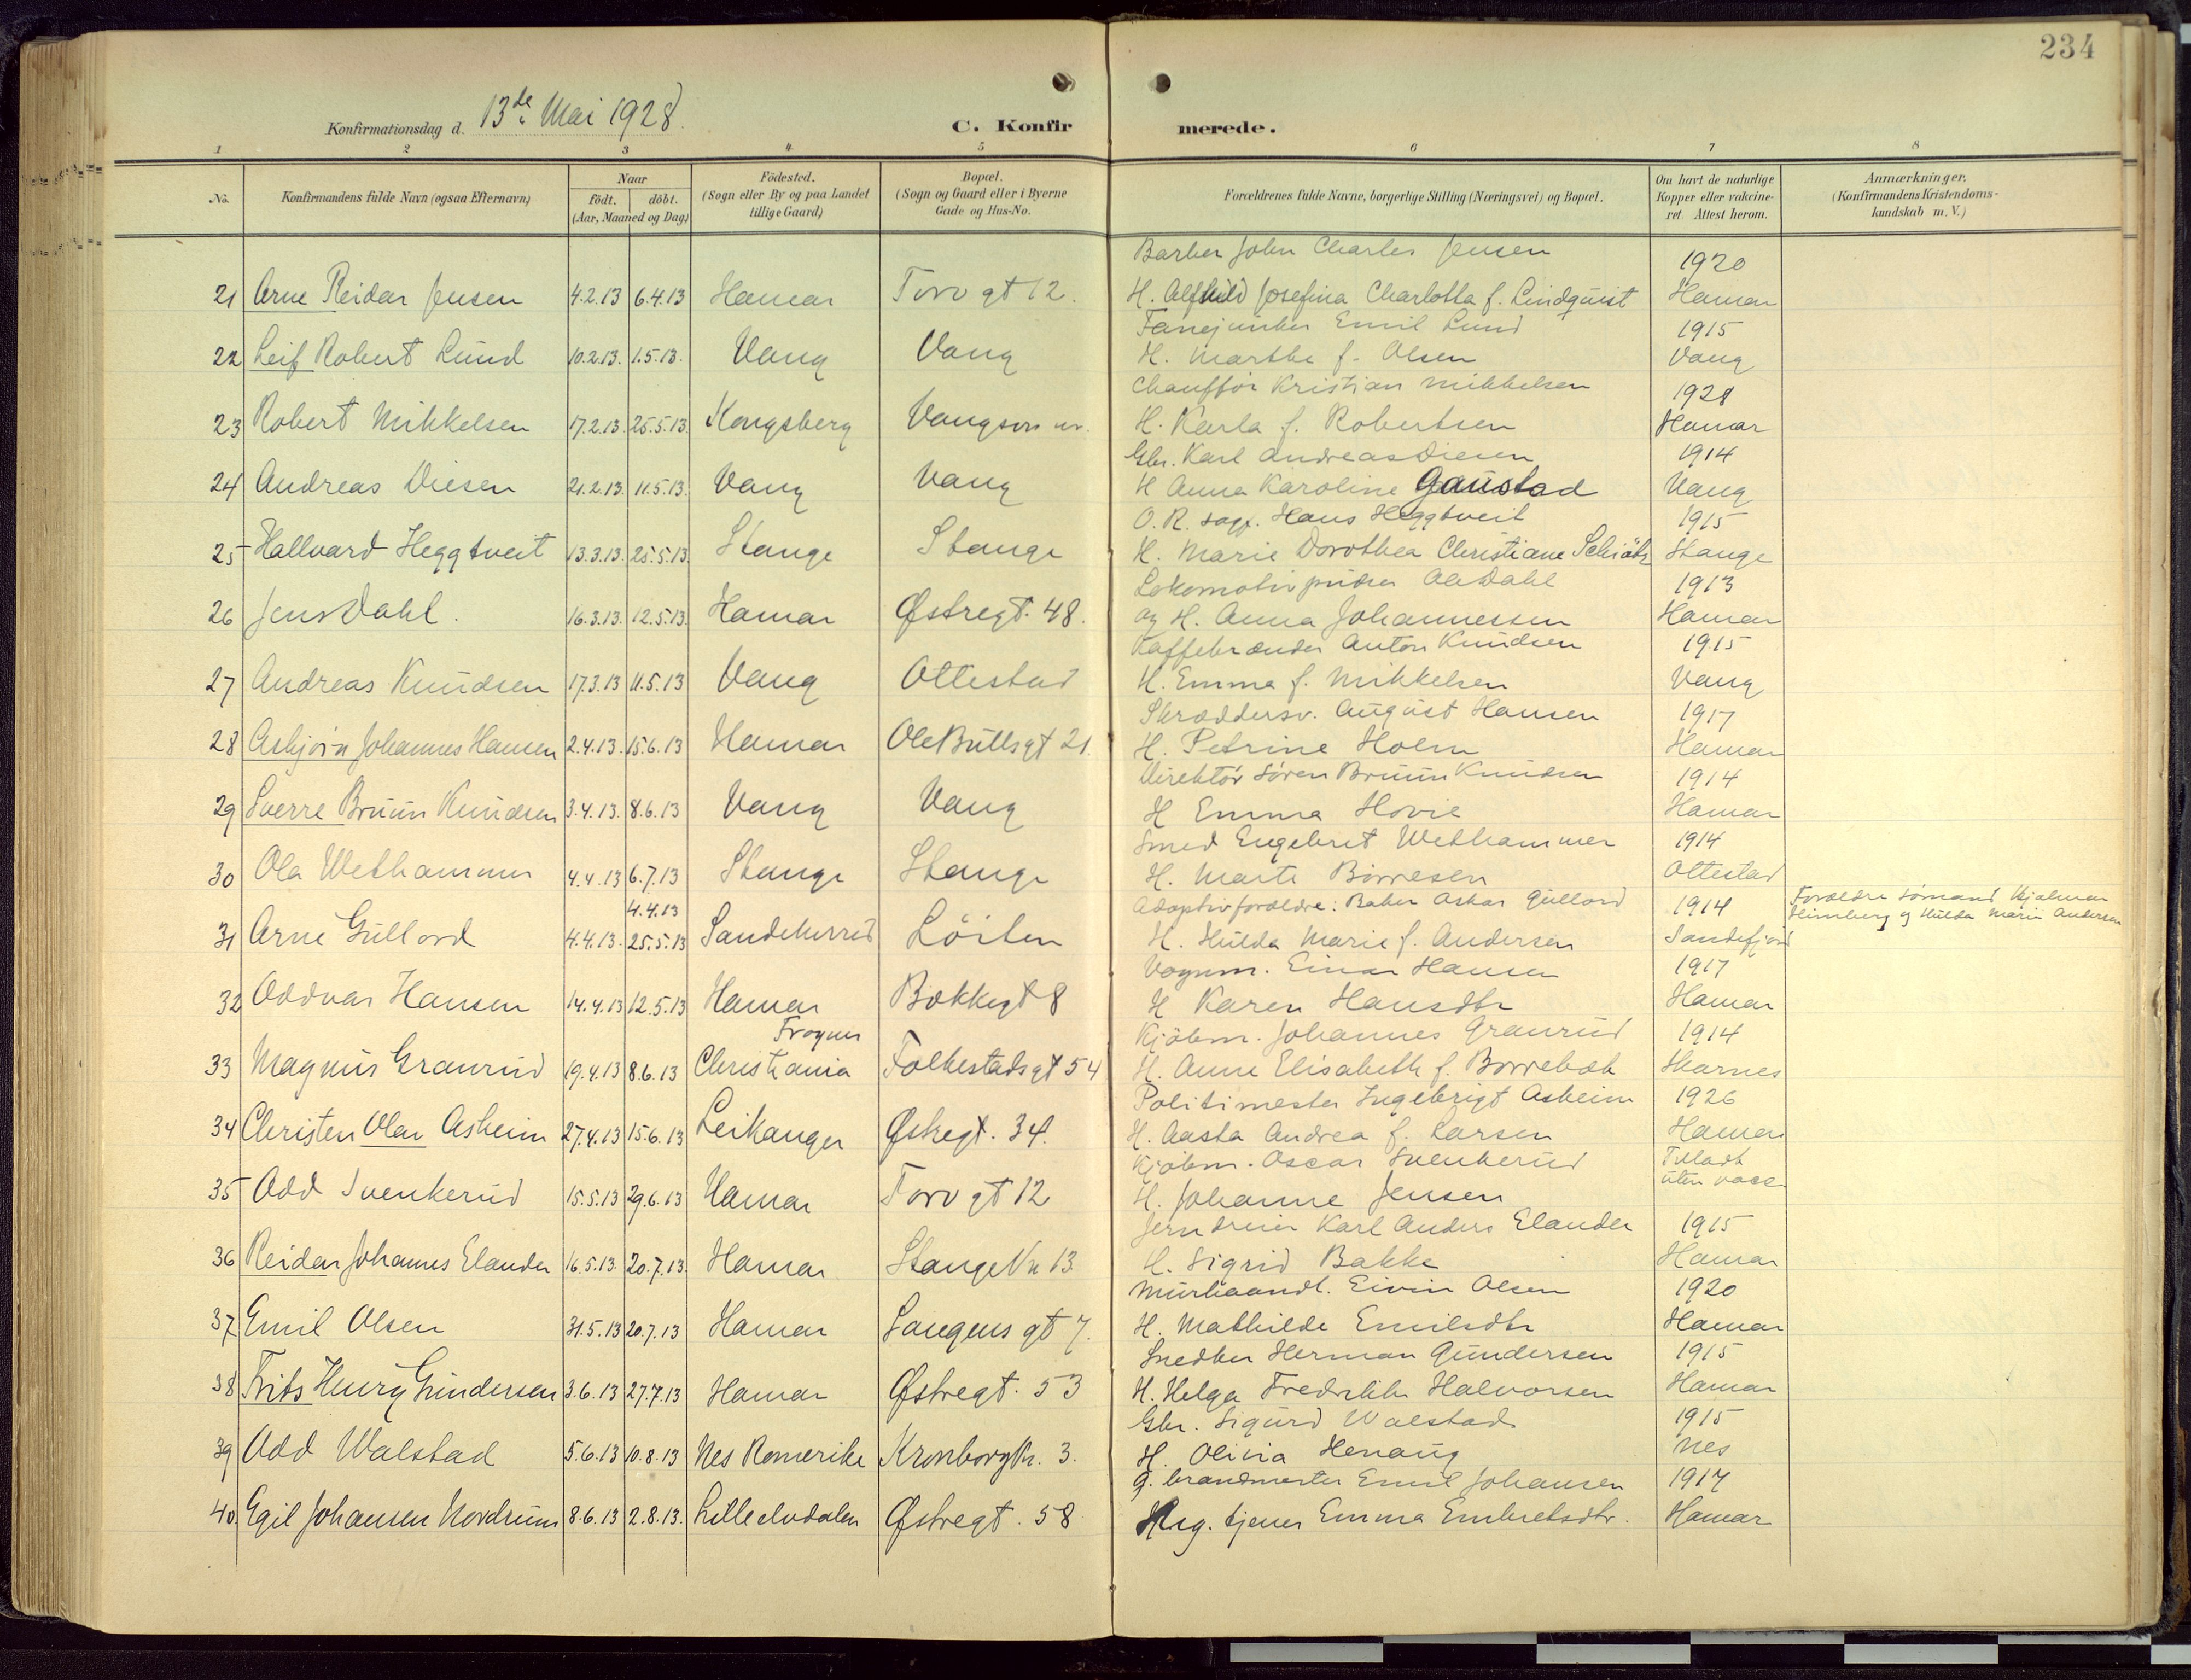 234
Konfirmationsdag d. 13de Mai 1928.
C. Konfirmerede.
1 2 3 4 5 6 7 8
No. Konfirmandens fulde Navn (ogsaa Efternavn) Naar födt. döbt. (Aar, Maaned og Dag) Födested. (Sogn eller By og paa Landet tillige Gaard) Bopæl. (Sogn og Gaard eller i Byerne Gade og Hus-No. Forældrenes fulde Navne, borgerlige Stilling (Næringsvei) og Bopæl. Om havt de naturlige Kopper eller vakcineret Attest herom. Anmærkninger. (Konfirmandens Kristendomskundskab m. V.)
Barber John Charles Jensen 1920
21 Arne Reidar Jensen 4.2.13 6.4.13 Hamar Torvgt 12. H. Alfhild Josefina Charlotta f. Lindquist Hamar
Fanejunker Emil Lund 1915
22 Leif Robert Lund 10.2.13. 1.5.13. Vang Vang H. Marthe f. Olsen Vang
Chauffør Kristian Mikkelsen 1928
23 Robert Mikkelsen 17.2.13. 25.5.13. Kongsberg Vangsvn H. Karla f. Robertsen Hamar
Gbr. Karl Andreas Diesen 1914
24 Andreas Diesen 21.2.13 11.5.13. Vang Vang H Anna Karoline Gaustad Vang
O.R. sagf. Hans Heggtveit 1915
25 Hallvard Heggtveit 13.3.13. 25.5.13. Stange Stange H. Marie Dorothea Christiane Schiötz Stange
Lokomotivpudser Ole Dahl 1913
26 Jens Dahl. 16.3.13. 12.5.13. Hamar Østregt. 48. og H. Anna Johannessen Hamar
Kaffebrænder Anton Knudsen 1915
27 Andreas Knudsen 17.3.13 11.5.13 Vang Ottestad H. Emma f. Mikkelsen Vang
Skræddersv. August Hansen 1917
28 Asbjørn Johannes Hansen 2.4.13. 15.6.13 Hamar Ole Bullsgt 21. H. Petrine Holm Hamar
Direktör Sören Bruun Knudsen 1914
29 Sverre Bruun Knudsen 3.4.13. 8.6.13 Vang Vang H Emma Hovie Hamar
Smed Engebret Wethammer 1914
30 Ola Wethammer 4.4.13 6.7.13 Stange Stange H. Marte Börresen Ottestad
4.4.13 Adoptivforældre: Baker Oskar Gullord 1914 Forældre sömand Hjalmar
31 Arne Gullord 4.4.13. 25.5.13 Sandeherred Löiten H. Hulda Marie f. Andersen Sandefjord og Hulda Marie Andersen
Vognm. Einar Hansen 1917
32 Oddvar Hansen 14.4.13 12.5.13 Hamar Bækkegt 8 H Karen Hansdtr Hamar
Frogner Kjöbm. Johannes Granrud 1914
33 Magnus Granrud 19.4.13 8.6.13 Christiania Folkestadsgt 54 H. Anne Elisabeth f. Borrebæk Skarnes
Politimester Ingebrigt Asheim 1926
34 Christen Olav Asheim 27.4.13 15.6.13 Leikanger Østregt. 34. H. Aasta Andrea f. Larsen Hamar
Kjöbm. Oscar Svenkerud Tilladt
35 Odd Svenkerud 15.5.13 29.6.13 Hamar Torvgt 12 H. Johanne Jensen uten vacc.
Jerndreier Karl Anders Elander 1915
36 Reidar Johannes Elander 16.5.13. 20.7.13. Hamar Stangevn 13 H. Sigrid Bakke Hamar
Murhaandl. Eivin Olsen 1920
37 Emil Olsen 31.5.13 20.7.13 Hamar Langens gt 7. H. Mathilde Emilsdtr Hamar
Snedker Herman Gundersen 1915
38 Frits Henry Gundersen 3.6.13 27.7.13 Hamar Østregt. 53 H. Helga Fredrikke Halvorsen Hamar
Gbr. Sigurd Walstad 1915
39 Odd Walstad 5.6.13 10.8.13 Nes Romerike Kronborgvn. 3. H. Olivia Henaug Nes
g. brandmester Emil Johansen 1917
40 Egil Johansen Nordrum 8.6.13 2.8.13. Lilleelvdalen Østregt. 58 ug. tjener Emma Embretsdtr. Hamar